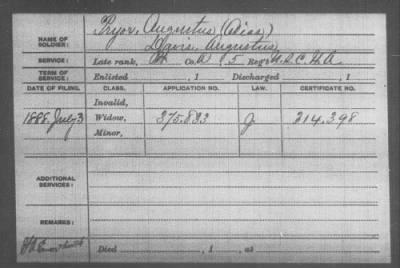 NAME OF SOLDIER: Pryor, Augustus (alias)
Davis, Augustus
SERVICE: Late rank, Co. 5 Reg't U.S.C.H.A.
TERM OF SERVICE: Enlisted , 1 Discharged , 1
DATE OF FILING. CLASS. APPLICATION NO. LAW. CERTIFICATE NO.
Invalid,
1888. July 3 Widow, 375.833 J 214.398
Minor,
ADDITIONAL SERVICES:
REMARKS:
Died , 1 , at